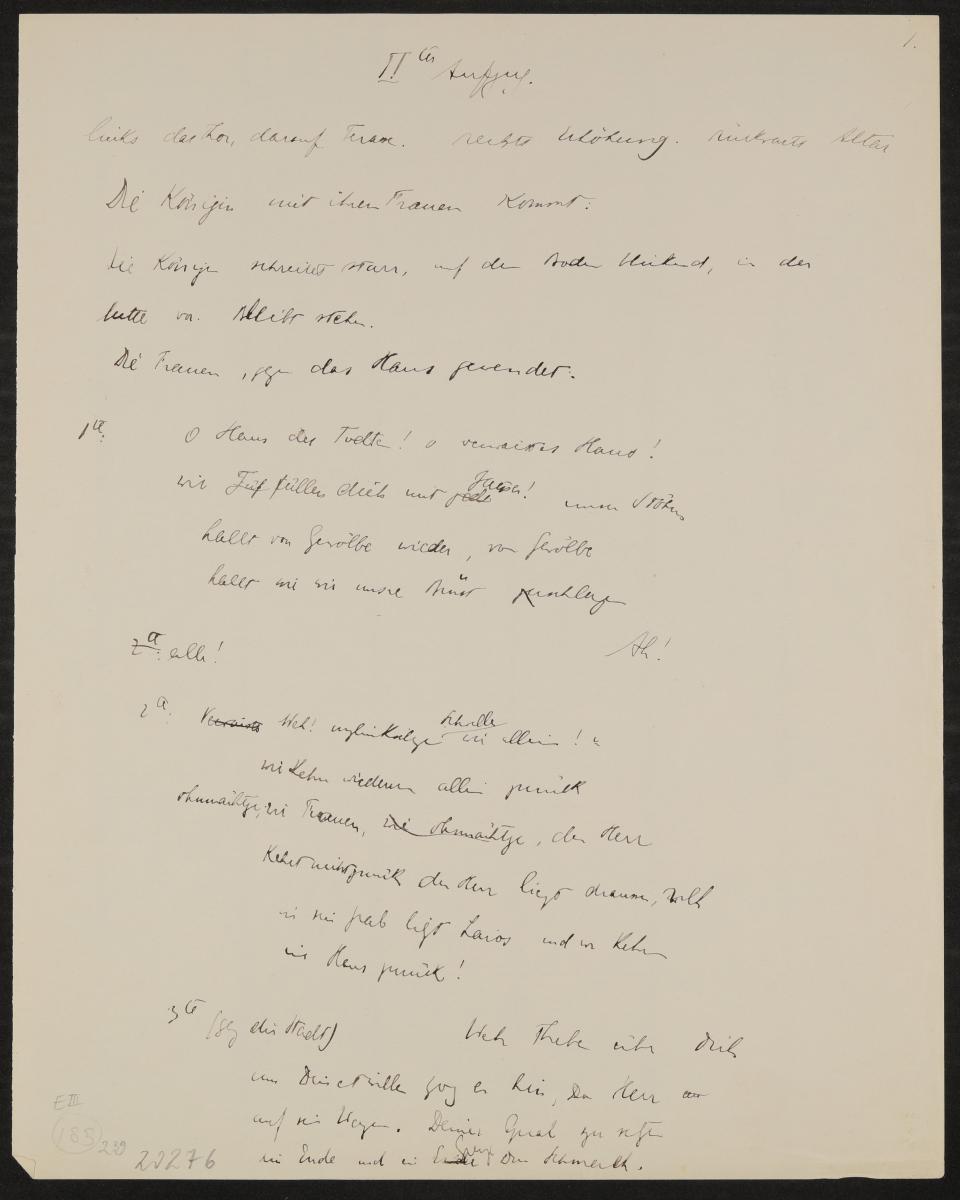 1.
IIter Aufzug.
links das Tor, darauf Terasse. rechts Erhöhung. rückwärts Altar
Die Königin mit ihren Frauen kommt.
Die Königin schreitet starr, auf den Boden blickend, in der
Mitte vor. Bleibt stehn.
Die Frauen, gegen das Haus gewendet:
1te: O Haus des Todten! o verwaistes Haus!
wir füllen dich mit Jammer! unser Stöhnen
hallt von Gewölbe wieder, von Gewölbe
hallt wie wir unsre Brüst zerschlagen
2te: alle! Ah!
2te: Verwaiste Weh! unglückselige Schwelle wir allein!
wir kehren wiederum allein zurück
ohnmächtge, wir Frauen, wir ohnmächtge, der Herr
kehrt nicht zurück der Herr liegt draussen,
in sein Grab liegt Laios und wir kehren
ins Haus zurück!
3te (geg die Stadt) Weh Thebe über dich
um Deinetwillen zog er hin, Der Herr
auf sein Wagen. Deiner Qual zu setzen
ein Ende und ein Ende Grenze Dem Schmerz.
E III
188
239
20276